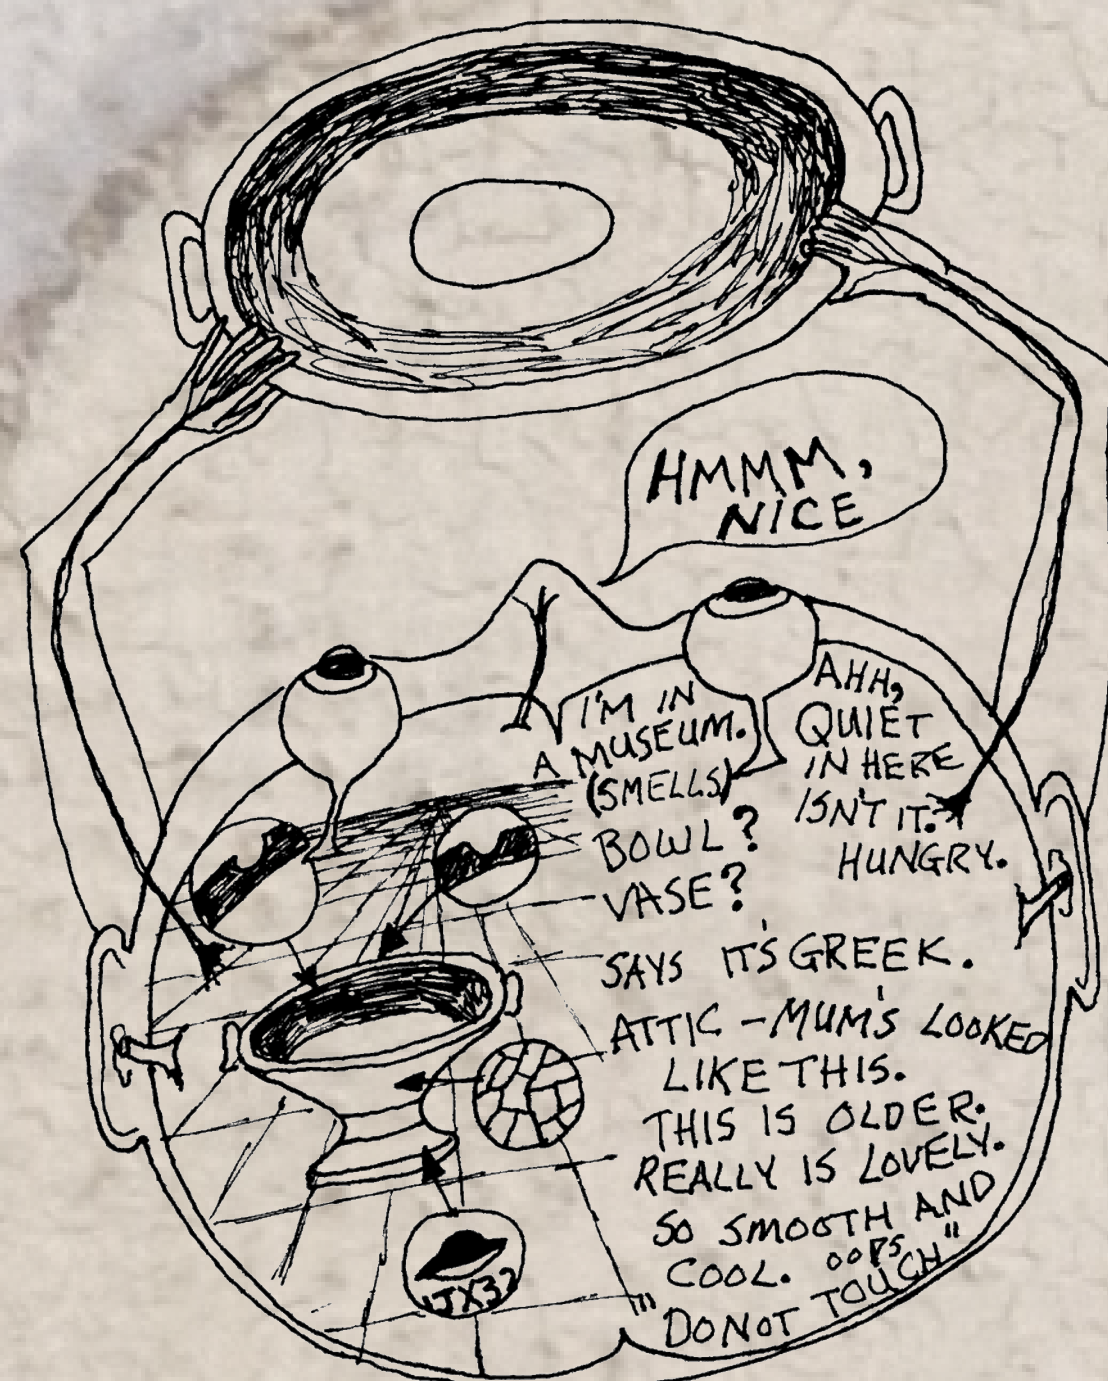 HMMM,
NICE
I'M IN
A MUSEUM.
(SMELLS)
BOWL?
VASE?
AHH,
QUIET
IN HERE
ISN'T IT.
HUNGRY.
SAYS IT'S GREEK.
ATTIC - MUM'S LOOKED
LIKE THIS.
THIS IS OLDER.
REALLY IS LOVELY.
SO SMOOTH AND
COOL. OOPS
"DO NOT TOUCH"